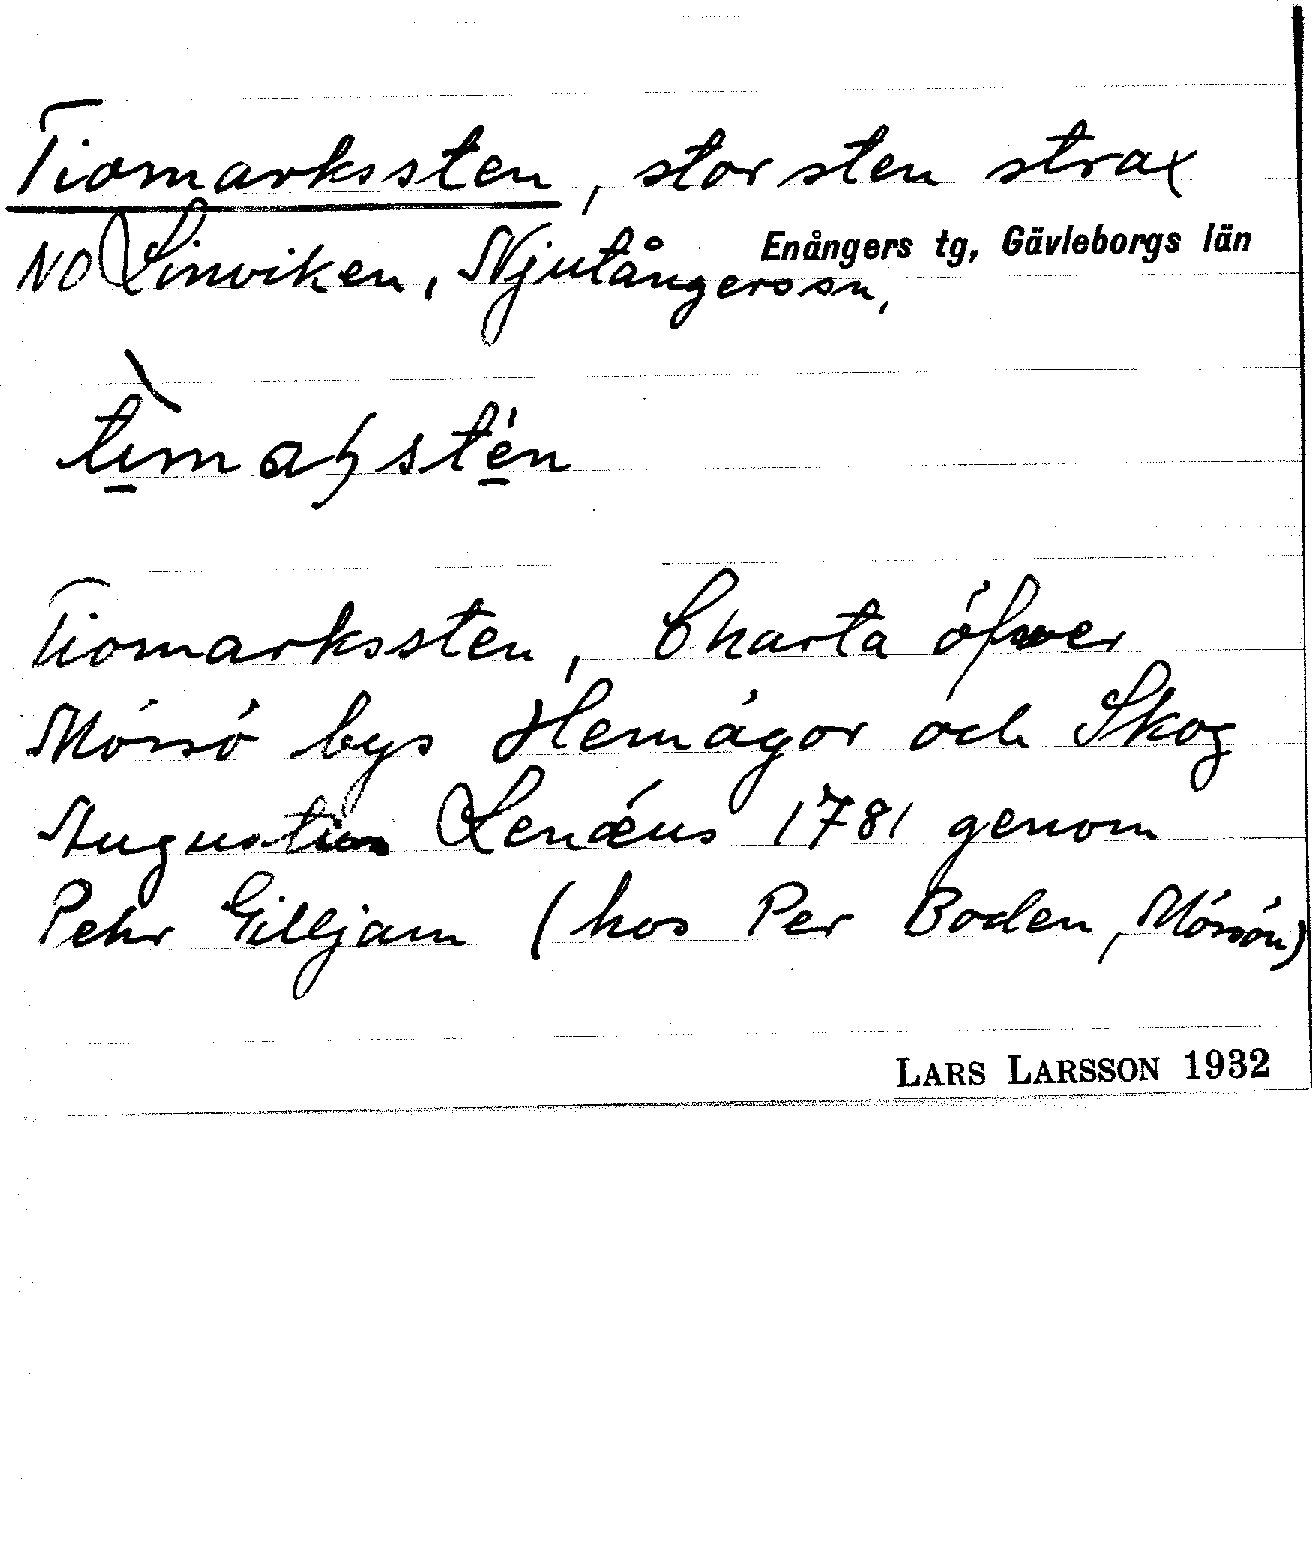 Tiomarkssten, stor sten strax
NO Linviken, Njutångers sn, Enångers tg, Gävleborgs län
Tiomarkssten, Charta öfwer
Mössö bys Hemägor och Skog
Lenæus 1781 genom
Pehr Gilljam (hos Per Boden, Mössön)
LARS LARSSON 1932